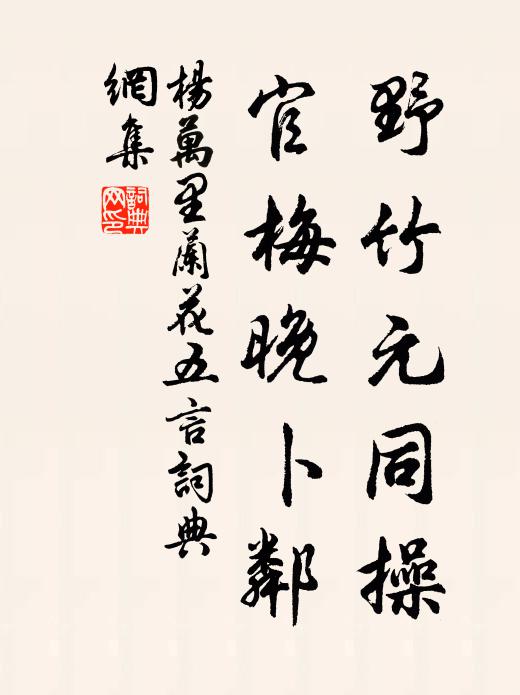 野竹元同操
官梅晚卜鄰
楊萬里蘭花五言詞典
網集
詞典
网印